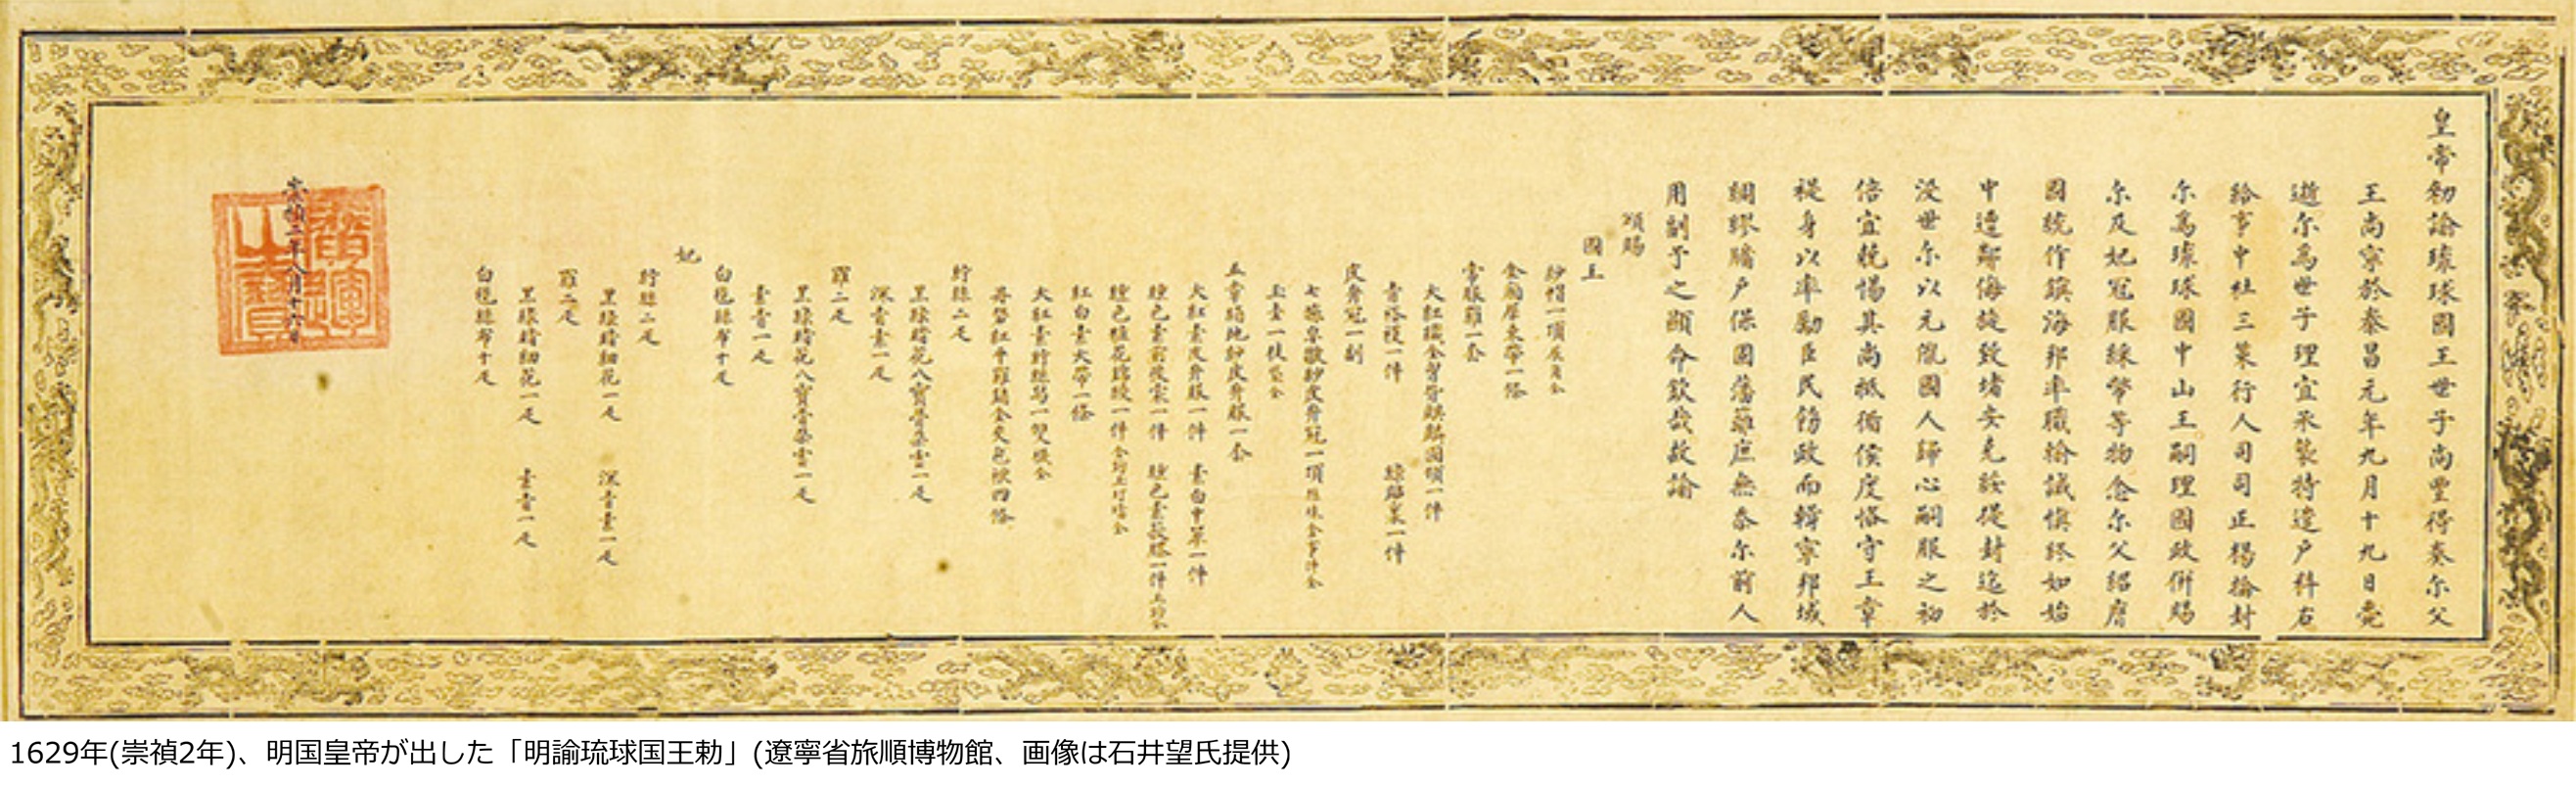 皇帝勅諭琉球國王世子尚豐得奏尔父
王尚寧於泰昌元年九月十九日薨
逝尔爲世子理宜承襲特遣戶科右
給事中杜三策行人司司正楊掄封
尔爲琉球國中山王嗣理國政併賜
尔及妃冠服綵幣等物念尔父紹膺
國統作鎮海邦率職輸誠慎終如始
中遭鄰侮旋致堵安克綏提封迄於
沒世尔以元儲國人歸心嗣服之初
倍宜兢惕其尚祗循侯度恪守王章
禔身以率勵臣民飭政而輯寧邦域
綢繆牖戶保固藩籬庶無忝尔前人
用副予之顯命欽哉故諭
頒賜
國王
紗帽一頂展角全
金廂犀束帶一條
常服羅一套
大紅織金胷背麒麟圓領一件
青褡䙱一件 綠貼裏一件
皮弁冠一副
七旒皁皺紗皮弁冠一頂旒珠金事件全
玉圭一枝袋全
五章絹地紗皮弁服一套
大紅素皮弁服一件 素白中單一件
纁色素前後裳一件 纁色素蔽膝一件玉鈎全
纁色粧花錦綬一件金鈎玉玎璫全
紅白素大帶一條
大紅素紵絲舄一雙襪全
丹礬紅平羅銷金夾包袱四條
紵絲二疋
黑綠暗花八寶骨朵雲一疋
深青素一疋
羅二疋
黑綠暗花八寶骨朵雲一疋
素青一疋
白氁絲布十疋
妃
紵絲二疋
黑綠暗細花一疋 深青素一疋
羅二疋
黑綠暗細花一疋 素青一疋
白氁絲布十疋
崇禎二年八月十六日
廣運之寶
1629年(崇禎2年)、明国皇帝が出した「明諭琉球国王勅」(遼寧省旅順博物館、画像は石井望氏提供)